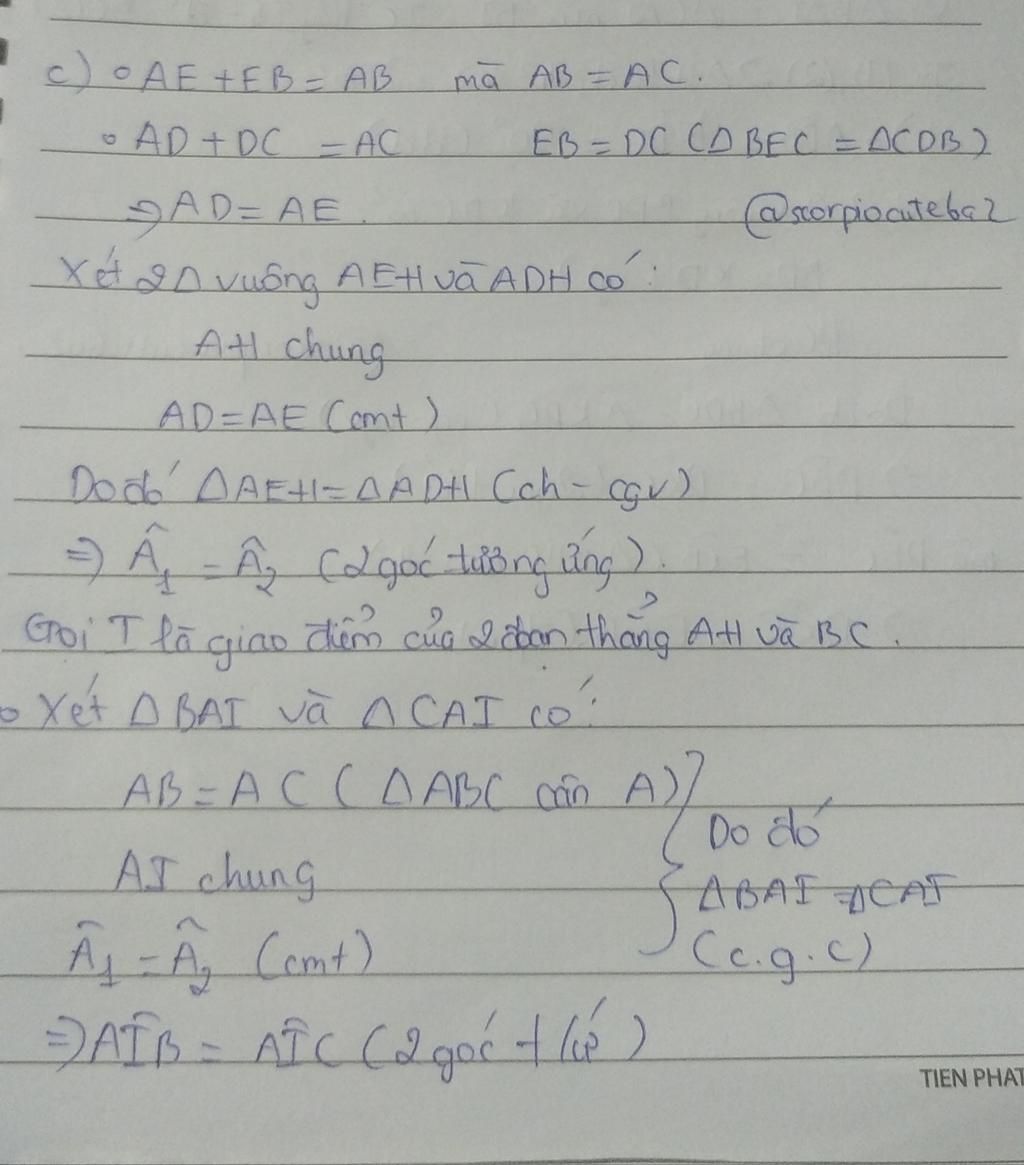 c) o AE + EB = AB mà AB = AC.
o AD + DC = AC EB = DC (Δ BEC = ΔCDB)
⇒ AD = AE.
@scorpiocuteba2
Xét 2Δ vuông AEH và ADH có:
AH chung
AD = AE (cmt)
Do đó ΔAEH = ΔADH (ch - cgv)
⇒ Â₁ = Â₂ (2 góc tương ứng).
Gọi I là giao điểm của 2 đoạn thẳng AH và BC.
o Xét Δ BAI và Δ CAI có:
AB = AC (ΔABC cân A)
AI chung
Â₁ = Â₂ (cmt)
} Do đó
ΔBAI = ΔCAI
(c.g.c)
⇒ AÎB = AÎC (2 góc t/ứ)
TIEN PHAT